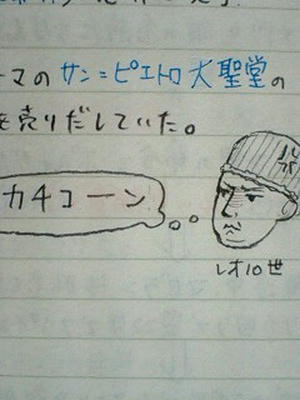 ーマのサン=ピエトロ大聖堂の
を売りだしていた。
カチコーン
レオ10世